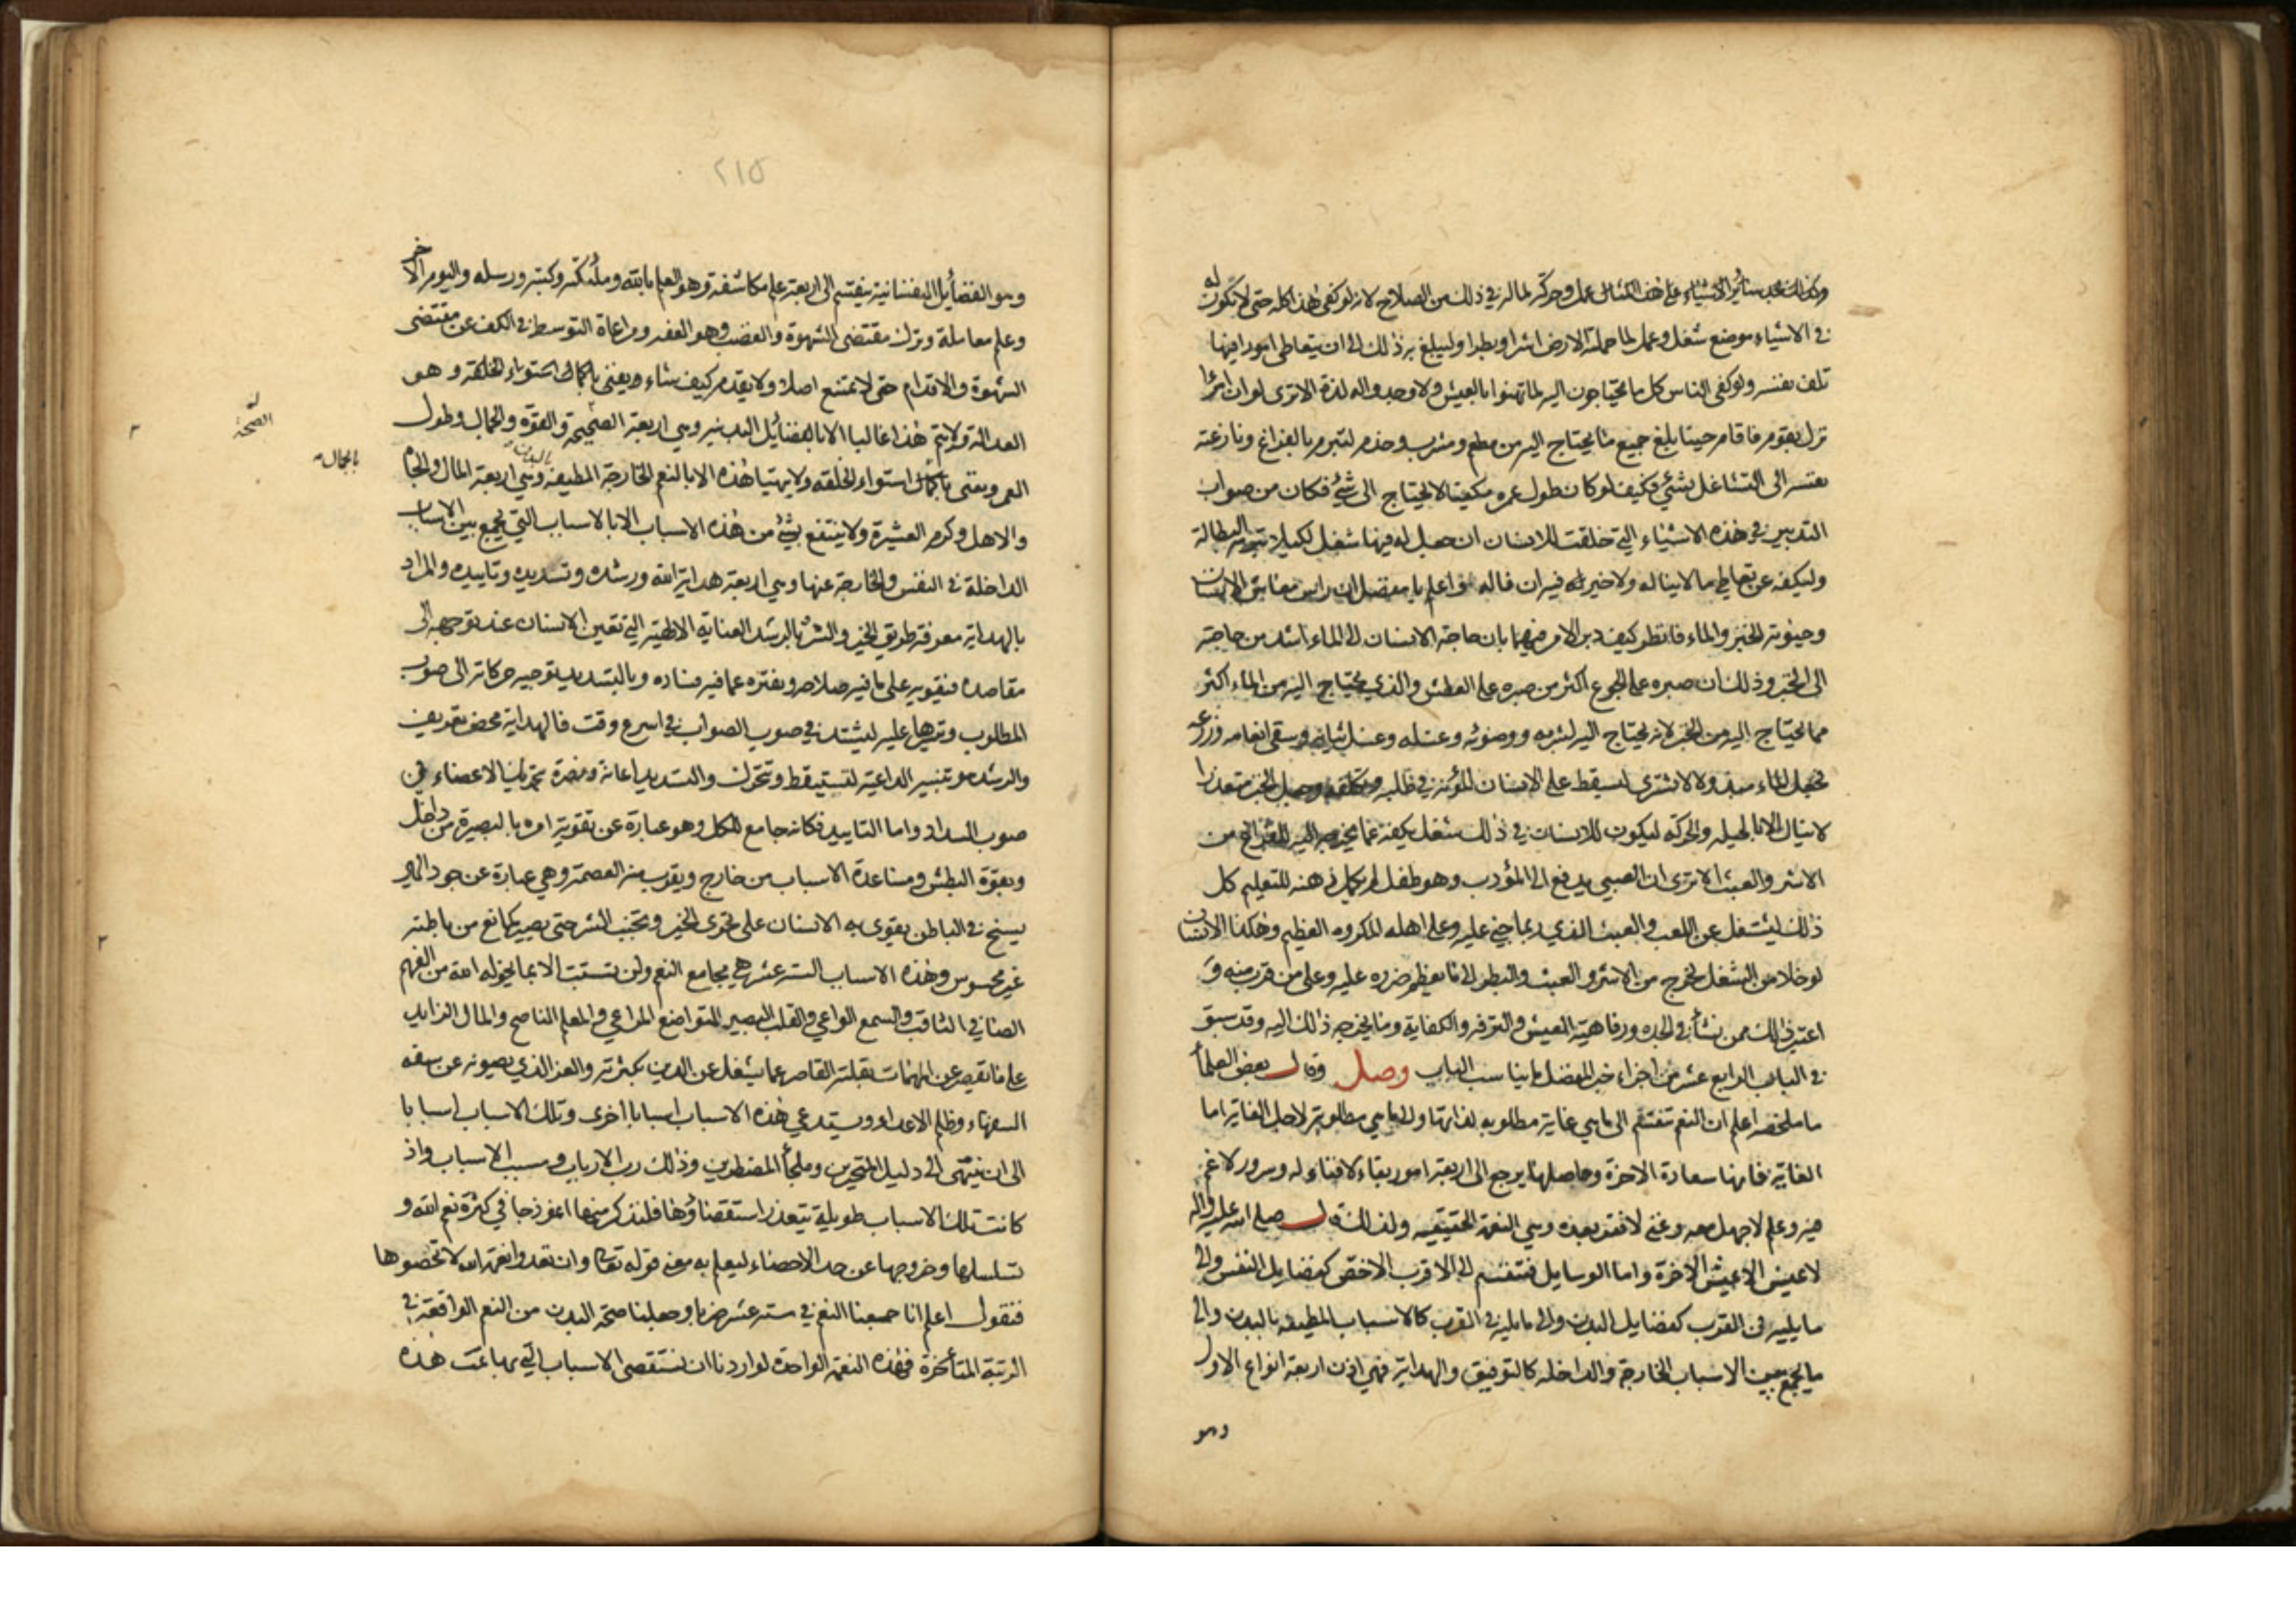 وكذلك تجد سائر الاشياء على هذا المثال عمل وحركة لما له في ذلك من الصلاح لانه لو كفى هذا كله حتى لا تكون له
في الاشياء موضع شغل وعمل لما حملته الارض اشرا وبطرا ولبلغ به ذلك الى ان يتعاطى امورا فيها
تلف نفسه ولو كفى الناس كل ما يحتاجون اليه لما تهنوا بالعيش ولا وجدوا له لذة الا ترى لو ان امرأ
نزل بقوم فاقام حينا بلغ جميع ما يحتاج اليه من مطعم ومشرب وخدمة لتبرم بالفراغ ونازعته
نفسه الى التشاغل بشئ فكيف لو كان طول عمره مكفيا لا يحتاج الى شئ فكان من صواب
التدبير في هذه الاشياء التي خلقت للانسان ان جعل له فيها شغل لكيلا تبرمه البطالة
ولتكفه عن تعاطي ما لا يناله ولا خير له فيه ان ناله واعلم يا مفضل ان راس معاش الانسان
وحيوته الخبز والماء فانظر كيف دبر الامر فيهما فان حاجة الانسان الى الماء اشد من حاجته
الى الخبز وذلك ان صبره على الجوع اكثر من صبره على العطش والذي يحتاج اليه من الماء اكثر
مما يحتاج اليه من الخبز لانه يحتاج اليه لشربه ووضوئه وغسله وغسل ثيابه وسقي انعامه وزرعه
فجعل الماء مبذولا لا تشترى لتسقط على الانسان المؤنة في طلبه وتكلفه وجعل الخبز متعذرا
لا ينال الا بالحيلة والحركة ليكون للانسان في ذلك شغل يكفه عما يخرجه اليه الفراغ من
الاشر والعبث الا ترى ان الصبي يدفع الى المؤدب وهو طفل لم يكمل ذهنه للتعليم كل
ذلك ليشتغل عن اللعب والعبث الذي ربما جنى عليه وعلى اهله المكروه العظيم وهكذا الانسان
لو خلا من الشغل لخرج من الاشر والعبث والبطر الى ما يعظم ضرره عليه وعلى من قرب منه و
اعتبر ذلك بمن نشأ في الجدة ورفاهية العيش والترفه والكفاية وما يخرجه ذلك اليه وقد سبق
في الباب الرابع عشر من اجزاء خبر المفضل ما يناسب الباب وصل وقال بعض العلماء
ما ملخصه اعلم ان النعم تنقسم الى ما هي غاية مطلوبة لذاتها والى ما هي مطلوبة لاجل الغاية اما
الغاية فانها سعادة الاخرة وحاصلها يرجع الى اربعة امور بقاء لا فناء له وسرور لا غم
فيه وعلم لا جهل معه وغنى لا فقر بعده وهي النعمة الحقيقية ولذلك قال صلى الله عليه واله
لا عيش الا عيش الاخرة واما الوسايل فتنقسم الى الاقرب الاخص كفضايل النفس والى
ما يليه في القرب كفضايل البدن والى ما يليه في القرب كالاسباب المطيفة بالبدن والى
ما يجمع بين الاسباب الخارجة والداخلة كالتوفيق والهداية فهي اذن اربعة انواع الاول
وهو
٢١٥
وهو الفضائل النفسانية ينقسم الى اربعة علم مكاشفة وهو العلم بالله وملائكته وكتبه ورسله واليوم الاخر
وعلم معاملة وترك مقتضى الشهوة والغضب وهو العفه ومراعاة التوسط في الكف عن مقتضى
الشهوة والاقدام حتى لا يمتنع اصلا ولا يقدم كيف شاء ويعنى بالكمال استواء الخلقة وهو
العدالة ولا يتم هذا غالبا الا بالفضائل البدنيه وهي اربعة الصحيحة والقوة والجمال وطول
العمر ويعنى بالكمال استواء الخلقه ولا يتهيا هذه الا بالنعم الخارجة المطيفه بالبدن وهي اربعة المال والجاه
والاهل وكرم العشيرة ولا ينتفع بشئ من هذه الاسباب الا بالاسباب التي يجمع بين الاسباب
الداخلة في النفس والخارجة عنها وهي اربعة هداية الله ورشده وتسديده وتاييده والمراد
بالهداية معرفة طريق الخير والشر بالرشد العناية الالهية التي تعين الانسان عند توجهه الى
مقاصده فيقويه على ما فيه صلاحه ويفتره عما فيه فساده وبالتسديد توجيه حركاته الى صوب
المطلوب وتيسرها عليه ليشتد في صوب الصواب في اسرع وقت فالهداية محض تعريف
والرشد هو تنبيه الداعية لتستيقظ وتتحرك والتسديد اعانة ونصرة بتحريك الاعضاء في
صوب السداد واما التاييد فكانه جامع للكل وهو عبارة عن تقوية امره بالبصيرة من داخل
وبقوة البطش ومساعدة الاسباب من خارج ويقرب منه العصمة وهي عبارة عن جود الهي
يسنح في الباطن يقوى به الانسان على تحرى الخير وتجنب الشر حتى يصير كمانع من باطنه
غير محسوس وهذه الاسباب الستة عشر هي مجامع النعم ولن تستتب الا بما يخوله الله من الفهم
الصافي الثاقب والسمع الواعي والقلب البصير المتواضع المراعي والمعلم الناصح والمال الزايد
على ما يقصر عن المهمات بقلته القاصر عما يشغل عن الدين بكثرته والعز الذي يصونه عن سفه
السفهاء وظلم الاعداء ويستدعي هذه الاسباب اسبابا اخرى وتلك الاسباب اسبابا
الى ان ينتهى الى دليل المتحيرين وملجأ المضطرين وذلك رب الارباب ومسبب الاسباب واذ
كانت تلك الاسباب طويلة يتعذر استقصاؤها فلنذكر منها انموذجا في كثرة نعم الله و
تسلسلها وخروجها عن حد الاحصاء ليعلم به معنى قوله تعالى وان تعدوا نعمة الله لا تحصوها
فنقول اعلم انا جمعنا النعم في ستة عشر ضربا وجعلنا صحة البدن من النعم الواقعة في
الرتبة المتأخرة فهذه النعمة الواحدة لو اردنا ان نستقصى الاسباب التي بها تمت هذه
الصحة
بالجمال